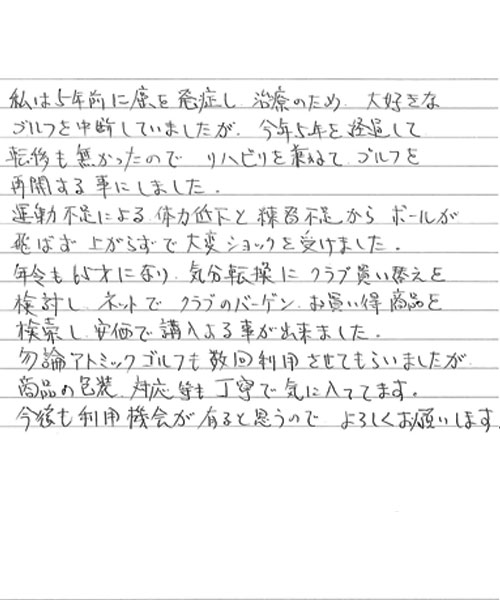 私は5年前に癌を発症し 治療のため 大好きな
ゴルフを中断していましたが、今年5年を経過して
転移も無かったので リハビリを兼ねて ゴルフを
再開する事にしました。
運動不足による 体力低下と 練習不足から ボールが
飛ばず 上がらずで 大変ショックを受けました。
年令も65才になり 気分転換に クラブ買い替えを
検討し ネットで クラブのバーゲン お買い得商品を
検索し 安価で購入よる事が出来ました。
勿論アトミックゴルフも数回利用させてもらいましたが
商品の包装 対応等も丁寧で気に入ってます。
今後も利用機会が有ると思うので よろしくお願いします。